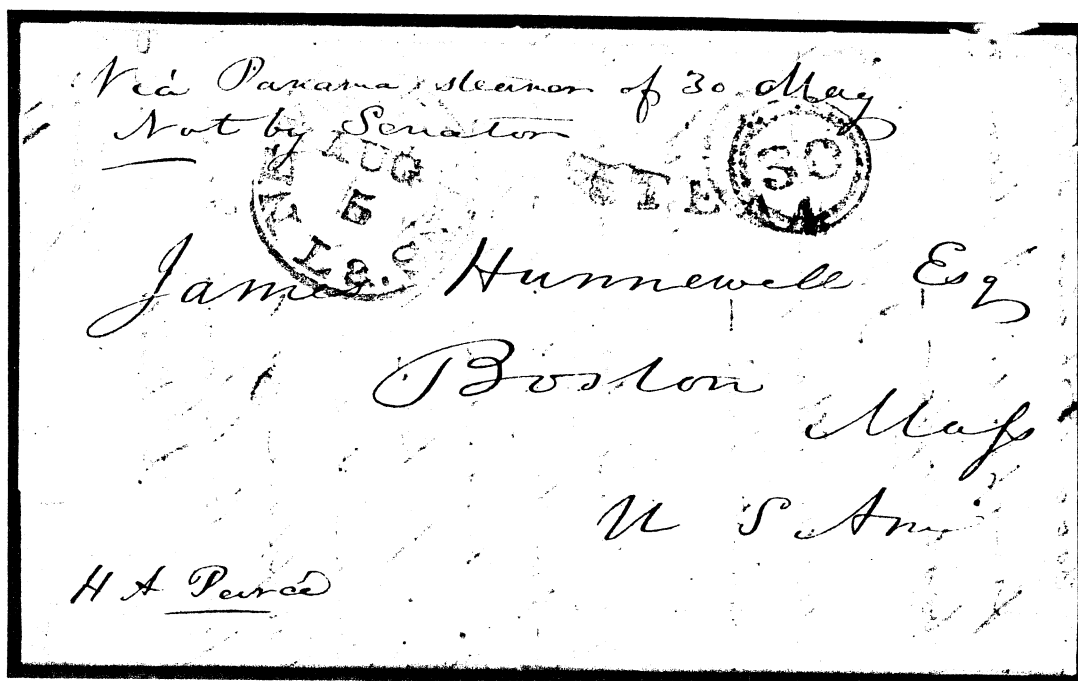 Via Panama steamer of 30 May
Not by Senator
AUG
5
STEAM
30
James Hunnewell Esq
Boston
Mass
U S Am
H A Peirce